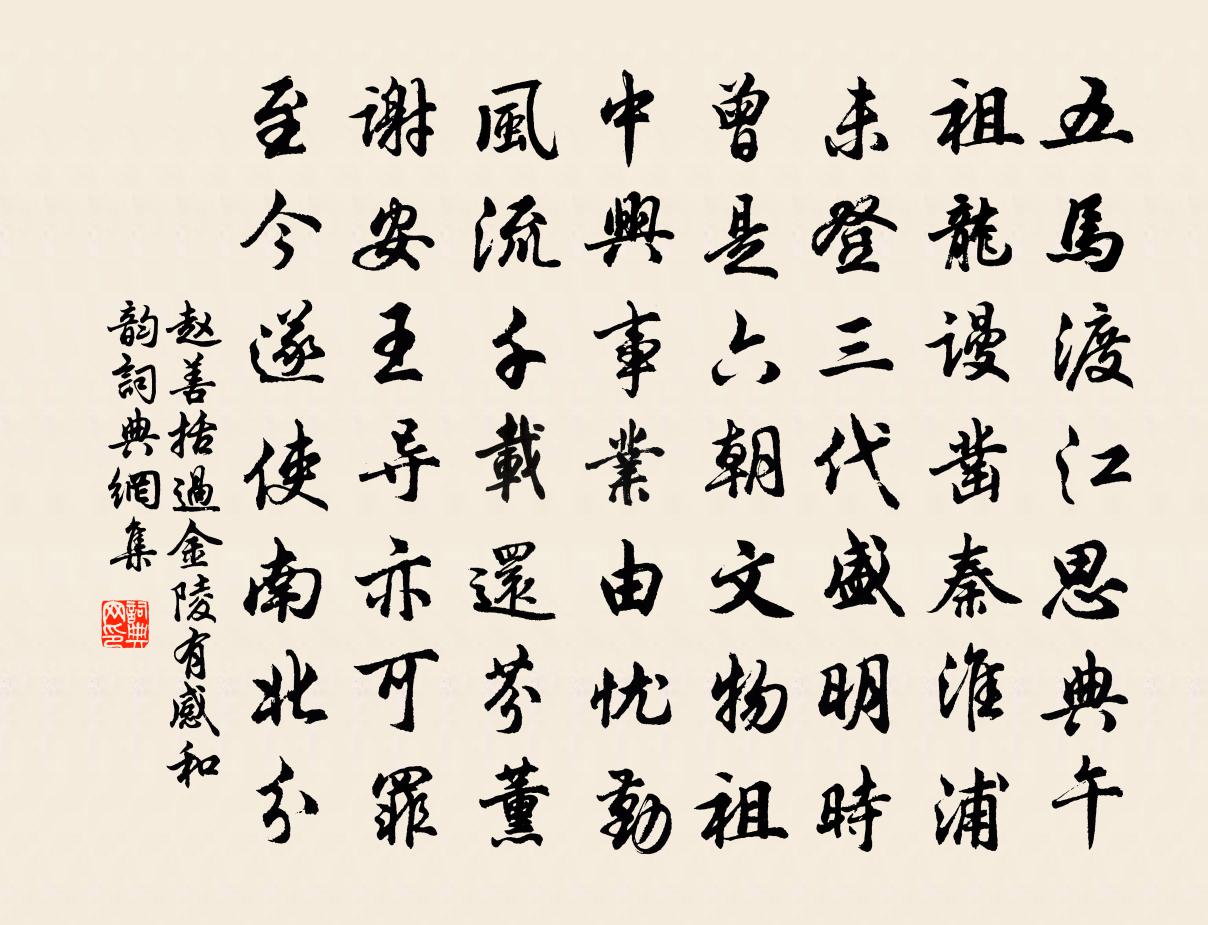 五馬渡江思典午
祖龍謾凿秦淮浦
未登三代盛明時
曾是六朝文物祖
中興事業由忧勤
風流千載還芬薰
謝安王导亦可罪
至今遂使南北分
赵善括過金陵有感和
韵詞典網集
詞典网印